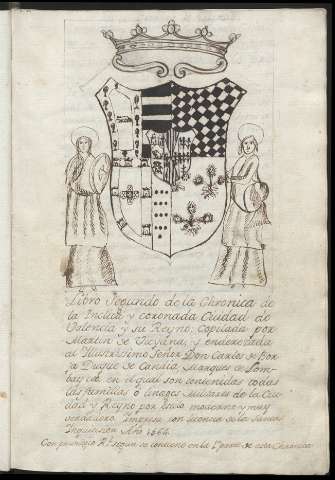 Libro Segundo de la Chronica de
la Inclita y coronada Ciudad de
Valencia y su Reyno: Copilada por
Martin de Viciana; y enderecada
al Illustrissimo Señor Don Carlos de Bor
ja Duque de Gandia, Marques de Lom-
bay &c. en el qual son contenidas todas
las familias ò linages Militares de la Ciu-
dad y Reyno por estilo moderno y muy
verdadero. Impresso con licencia de la Santa
Inquisicion Año 1564.
Con privilegio Rl. segun se contiene en la parte de esta Chronica